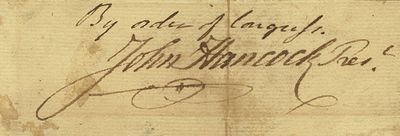 By order of Congress.
John Hancock Presᵗ.